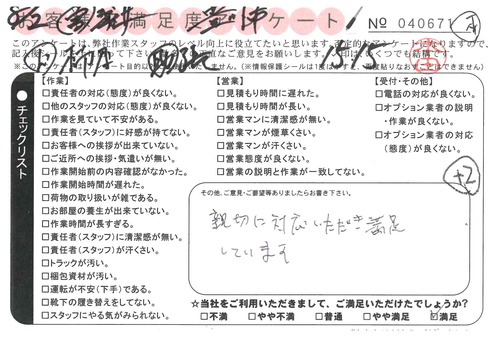 お客様満足度アンケート!
№ 040671
このアンケートは、弊社作業スタッフのレベル向上に役立てたいと思います。否定的なアンケートになりますので、
チェックリスト
【作業】
□責任者の対応(態度)が良くない。
□他のスタッフの対応(態度)が良くない。
□作業を見ていて不安がある。
□責任者(スタッフ)に好感が持てない。
□お客様への挨拶が出来ていない。
□ご近所への挨拶・気遣いが無い。
□作業開始前の内容確認がなかった。
□作業開始時間が遅れた。
□荷物の取り扱いが雑である。
□お部屋の養生が出来ていない。
□作業時間が長すぎる。
□責任者(スタッフ)に清潔感が無い。
□責任者(スタッフ)が汗くさい。
□トラックが汚い。
□梱包資材が汚い。
□運転が不安(下手)である。
□靴下の履き替えをしてない。
□スタッフにやる気がみられない。
【営業】
□見積もり時間に遅れた。
□見積もり時間が長い。
□営業マンに清潔感が無い。
□営業マンが煙草くさい。
□営業マンが汗くさい。
□営業態度が良くない。
□営業の説明と作業が一致してない。
【受付・その他】
□電話の対応が良くない。
□オプション業者の説明
・作業が良くない。
□オプション業者の対応
(態度)が良くない。
+2
その他、ご意見・ご要望等ありましたらお書き下さい。
親切に対応いただき満足
しています
☆当社をご利用いただきまして、ご満足いただけたでしょうか?
□不満 □やや不満 □普通 □やや満足 ☑満足